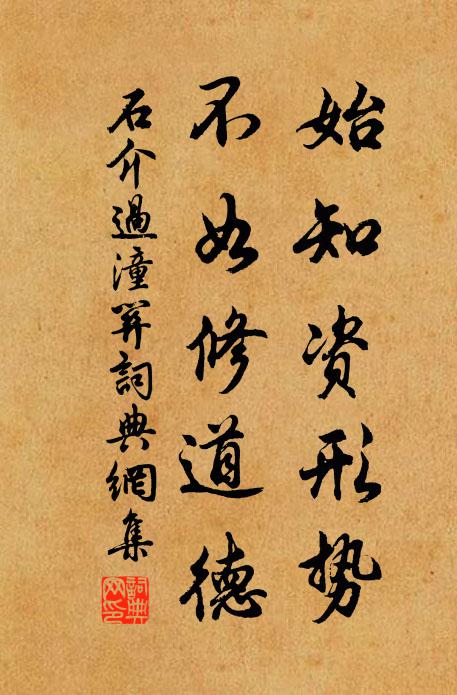 始知资形势
不如修道德
石介過潼関詞典網集
詞典网印